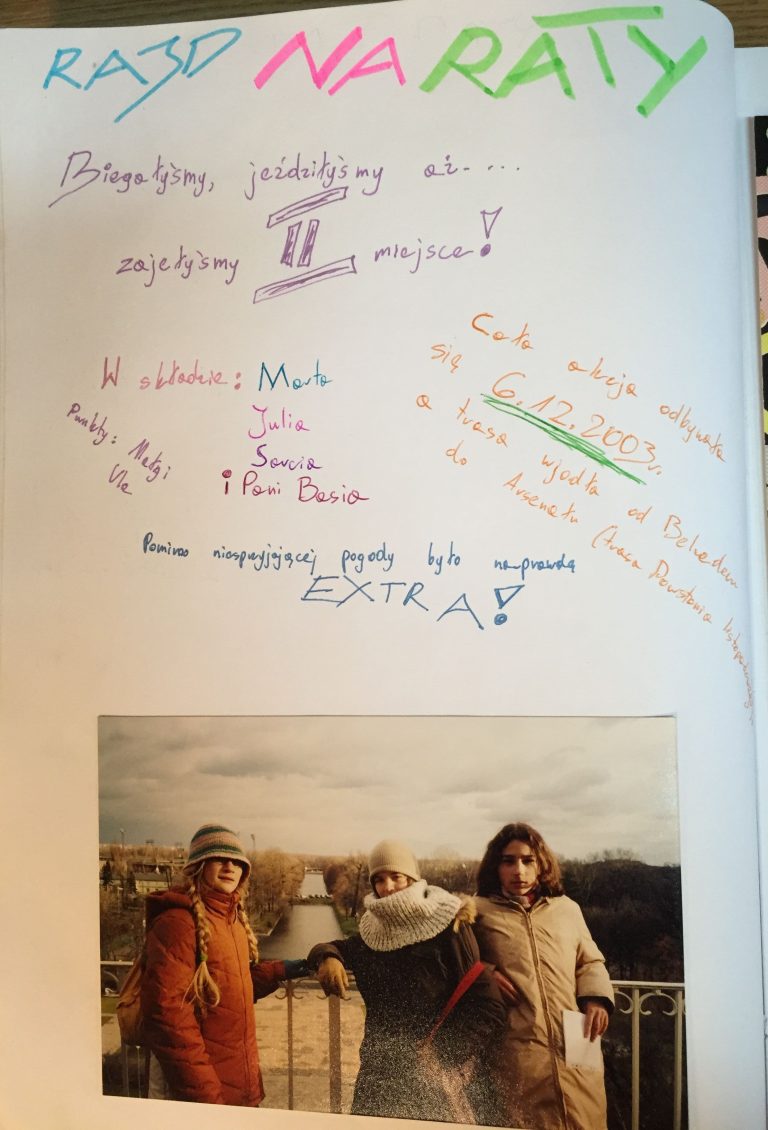 RAJD NA RATY
Biegałyśmy, jeździłyśmy aż....
zajełyśmy II miejsce!
W składzie: Marta
Julia
Sarcia
i Pani Basia
Punkty: Małgi
Ula
Cała akcja odbywała
się 6.12.2003r.
a trasa wiodła od Belwederu
do Arsenału (trasa Powstania listopadowego
Pomimo niesprzyjającej pogody było naprawdę
EXTRA!